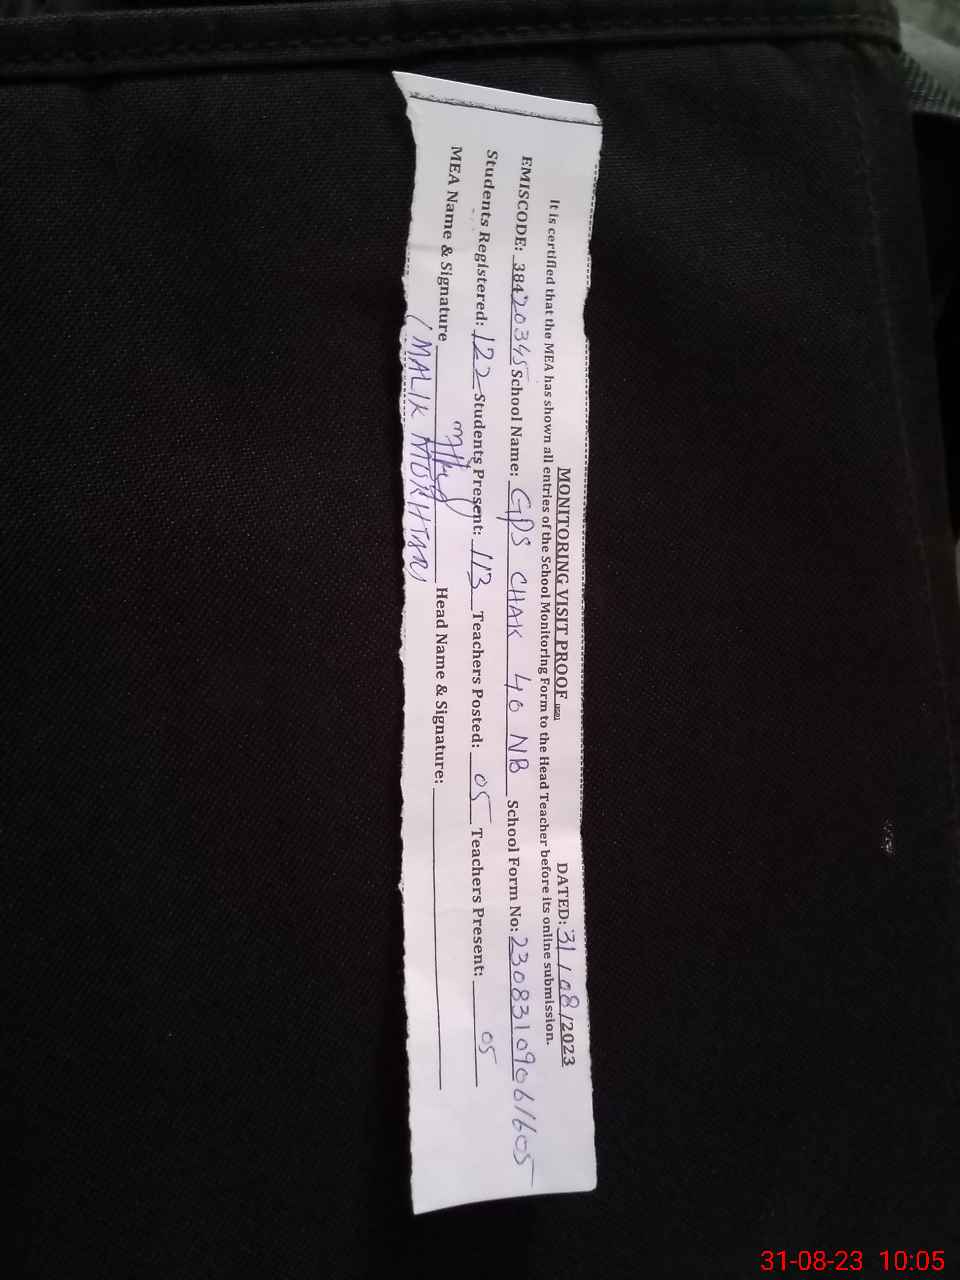 MONITORING VISIT PROOF DATED: 31/08/2023
It is certified that the MEA has shown all entries of the School Monitoring Form to the Head Teacher before its online submission.
EMISCODE: 38420345 School Name: GPS CHAK 40 NB School Form No: 23083109061605
Students Registered: 122 Students Present: 113 Teachers Posted: 05 Teachers Present: 05
MEA Name & Signature Head Name & Signature:
(MALIK MUKHTAR)
31-08-23 10:05